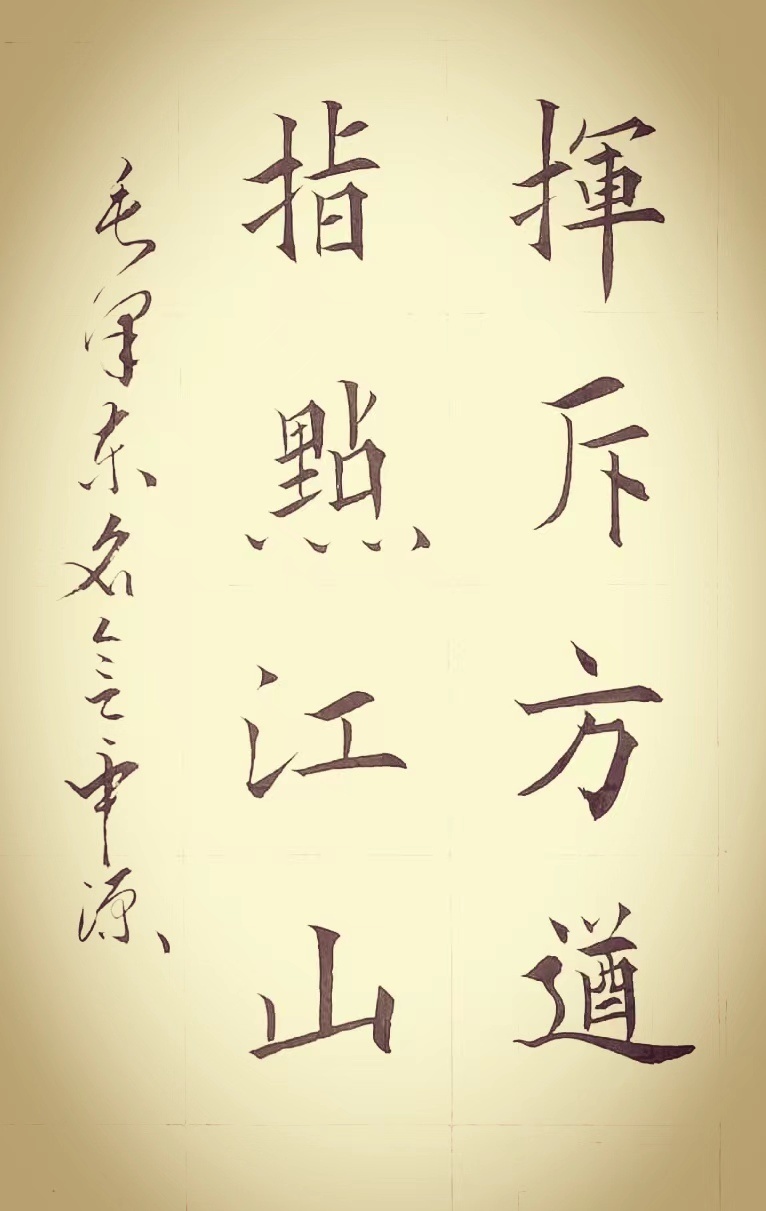 揮斥方遒
指點江山
毛澤东名言申源